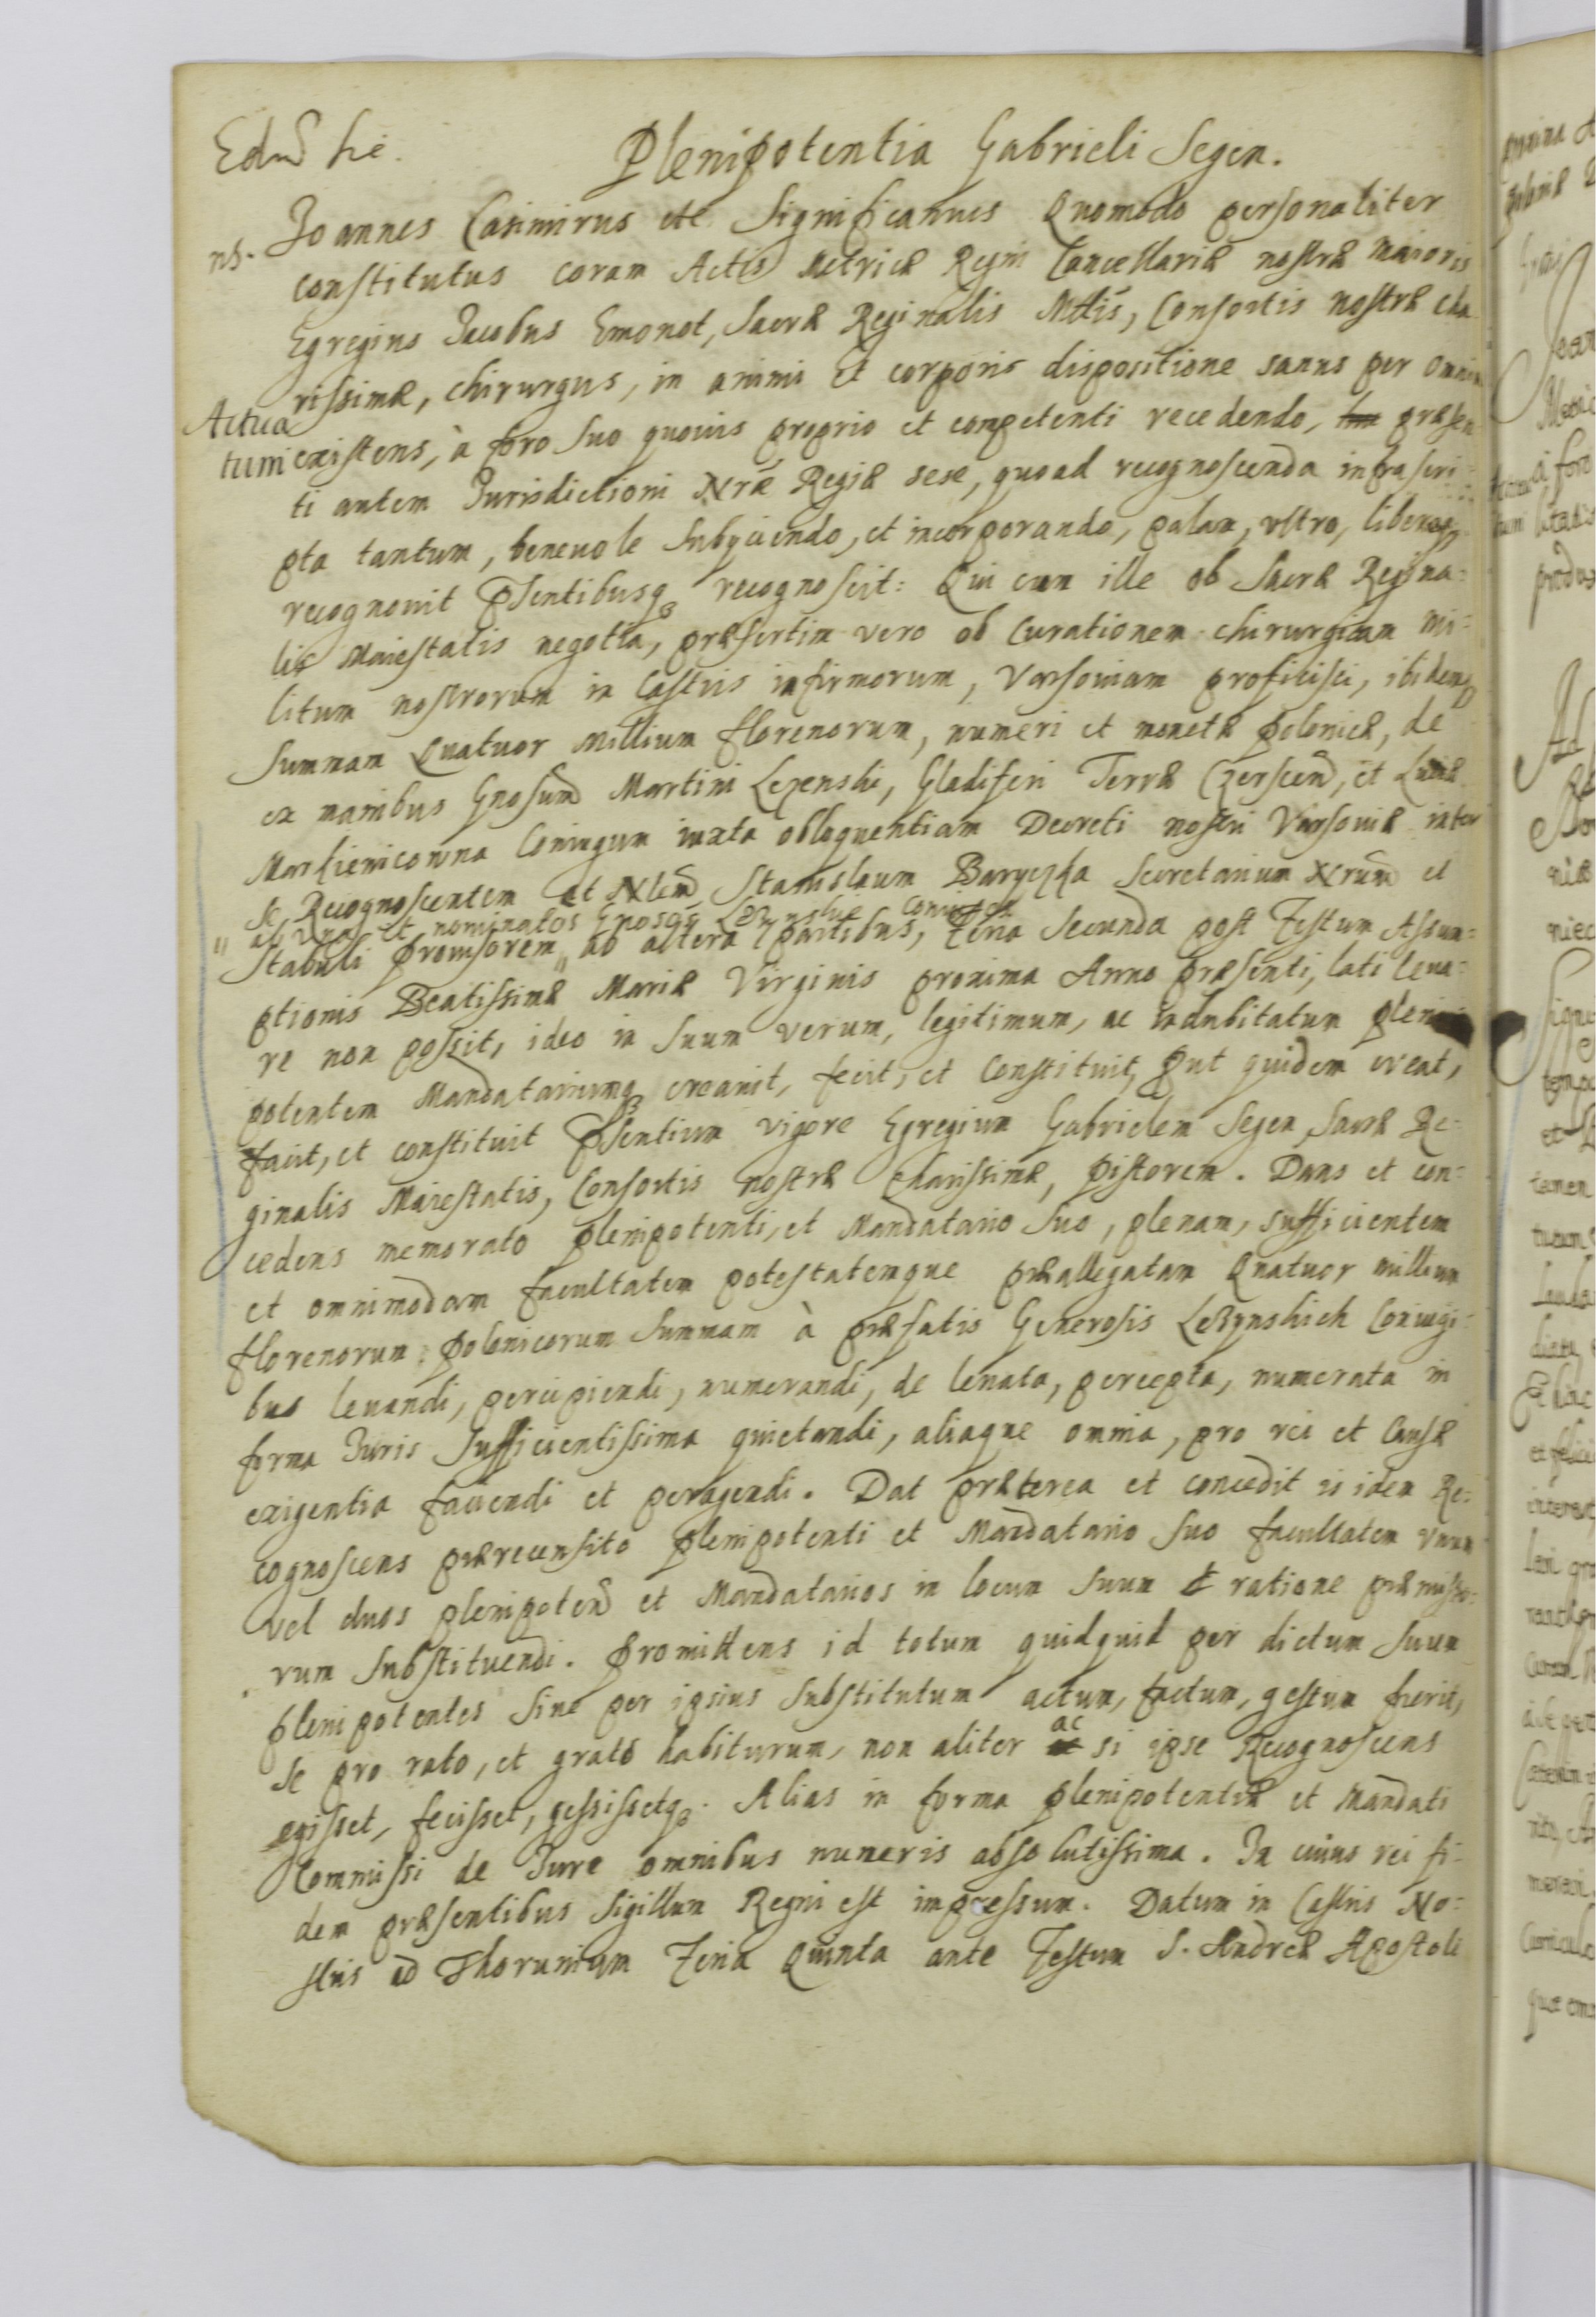 Plenipotentia Gabrieli Segen.
ns.
Joannes Casimirus etc Significamus Quomodo personaliter
constitutus coram Actis Metricæ Regni Cancellariæ nostræ Maioris
Egregius Jacobus Emonot, Sacræ Reginalis Mttis, Consortis nostræ cha
rissimæ, chirurgus, in animi et corporis dispositione sanus per omnia
Actica
tum
existens, à foro suo quovis proprio et competenti recedendo, præsen
ti autem Jurisdictioni Nræ Regiæ sese, quoad recognoscenda infrascri
pta tantum, benevole subijciendo, et incorporando, palam, vltro, libereq
recognovit Psentibusq recognoscit: Qui cum ille ob Sacræ Regina:
lis Maiestatis negotia, præsertim vero ob Curationem chirurgicam mi:
litum nostrorum in Castris infirmorum, Varsoviam proficisci, ibidemq
Summam Quatuor Millium florenorum, numeri et monetæ polonicæ, de
ex manibus Gnosum Martini Lezenski, Gladiferi Terræ Czerscen, et
Markieniconna Coniugum iuxta obloquentiam Decreti nostri Varsoviæ inter
se, Recognoscentem et Nlem Stanislaum Baryczka Secretarium Nrum et
ab vna et nominatos Gnosos Lezynskie Coniuges
Stabuli provisorem " ab altera partibus, feria secunda post Festum Assum:
ptionis Beatissimæ Mariæ Virginis proxima Anno præsenti, lati leua:
re non possit, ideo in suum verum, legitimum, ac indubitatum pleni
potentem Mandatariumq creavit, fecit, et Constituit, Put quidem creat,
facit, et constituit Psentium vigore Egregium Gabrielem Segen Sacræ Re:
ginalis Maiestatis, Consortis nostræ Charissimæ, pistorem. Dans et con:
cedens memorato plenipotenti, et Mandatario suo, plenam, sufficientem
et omnimodam facultatem potestatemque præallegatam Quatuor millium
florenorum polonicorum Summam à præfatis Generosis Lezynskich Coniugi:
bus levandi, percipiendi, numerandi, de levata, percepta, numerata in
forma Juris Sufficientissima quietandi, aliaque omnia, pro rei et Causæ
exigentia faciendi et peragendi. Dat præterea et concedit is idem Re:
cognoscens prærecensito plenipotenti et Mandatario suo facultatem vnum
vel duos plenipoten et Mandatarios in locum suum ratione præmisso:
rum substituendi. Promittens id totum quidquid per dictum suum
plenipotentes sive per ipsius substitutum actum, factum, gestum fuerit,
se pro rato, et grato habiturum, non aliter ac si ipse Recognoscens
egisset, fecisset, gessissetq. Alias in forma plenipotentiæ et Mandati
Commissi de Jure omnibus numeris absolutissima. In cuius rei fi:
dem præsentibus sigillum Regni est impressum. Datum in Castris No:
stris ad Thorunium Feria Quinta ante Festum S. Andreæ Apostoli